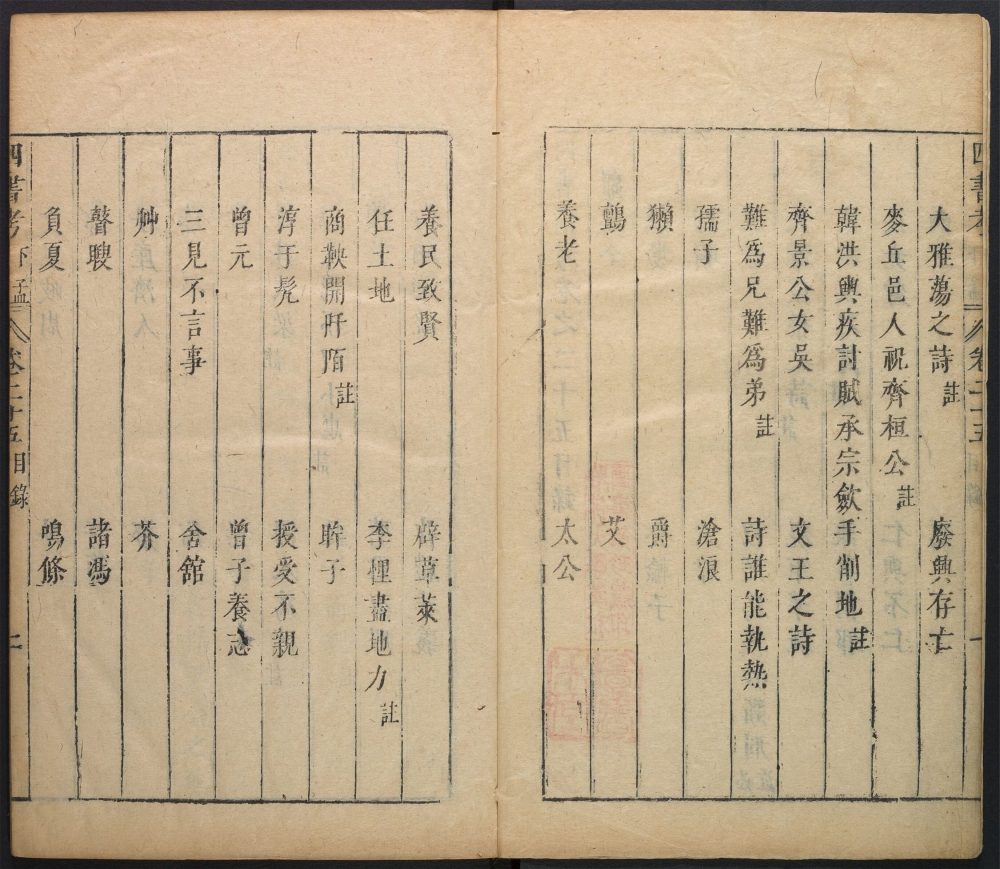 四書考下孟 卷二十五目錄 一
大雅蕩之詩註 廢興存亡
麥丘邑人祝齊桓公註
韓洪興疾討賊承宗斂手削地註
齊景公女吳 文王之詩
難為兄難為弟註 詩誰能執熱
孺子 滄浪
獺 爵
鸇 艾
養老 太公
養民致賢 辟草萊
任土地 李悝盡地力註
商鞅開阡陌註 眸子
淳于髡 授受不親
曾元 曾子養志
三見不言事 舍館
艸 芥
瞽瞍 諸馮
負夏 鳴條
四書考下孟 卷二十五目錄 二